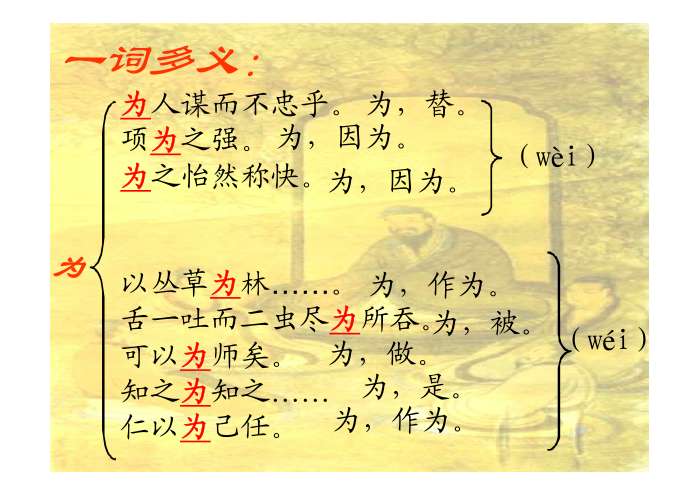 一词多义：
为人谋而不忠乎。 为，替。
项为之强。 为，因为。
为之怡然称快。为，因为。
（wèi）
为
以丛草为林……。 为，作为。
舌一吐而二虫尽为所吞。为，被。
可以为师矣。 为，做。
知之为知之…… 为，是。
仁以为己任。 为，作为。
（wéi）